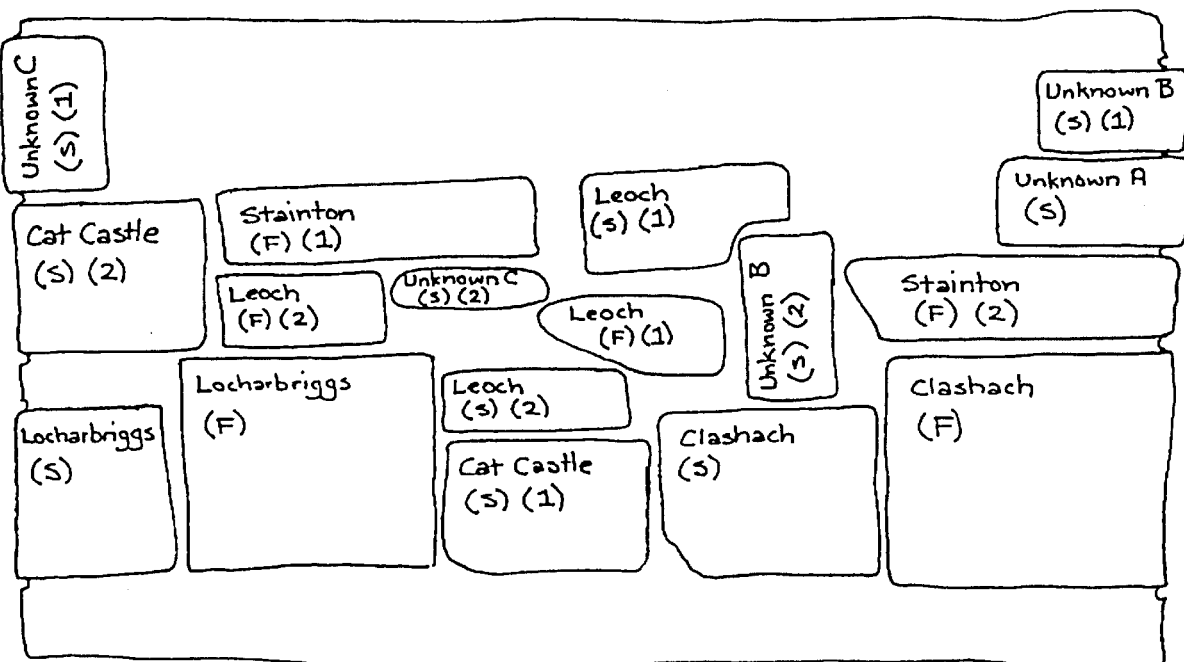 Unknown C
(S) (1)
Unknown B
(S) (1)
Unknown A
(S)
Cat Castle
(S) (2)
Stainton
(F) (1)
Leoch
(S) (1)
Leoch
(F) (2)
Unknown C
(S) (2)
Leoch
(F) (1)
Unknown B
(S) (2)
Stainton
(F) (2)
Locharbriggs
(S)
Locharbriggs
(F)
Leoch
(S) (2)
Cat Castle
(S) (1)
Clashach
(S)
Clashach
(F)